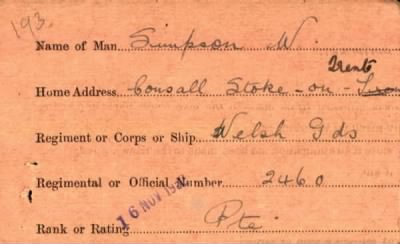 193.
Name of Man Simpson W.
Trent
Home Address Consall Stoke-on-
Regiment or Corps or Ship Welsh Gds
Regimental or Official Number 2460
16 NOV
Rank or Rating Pte.